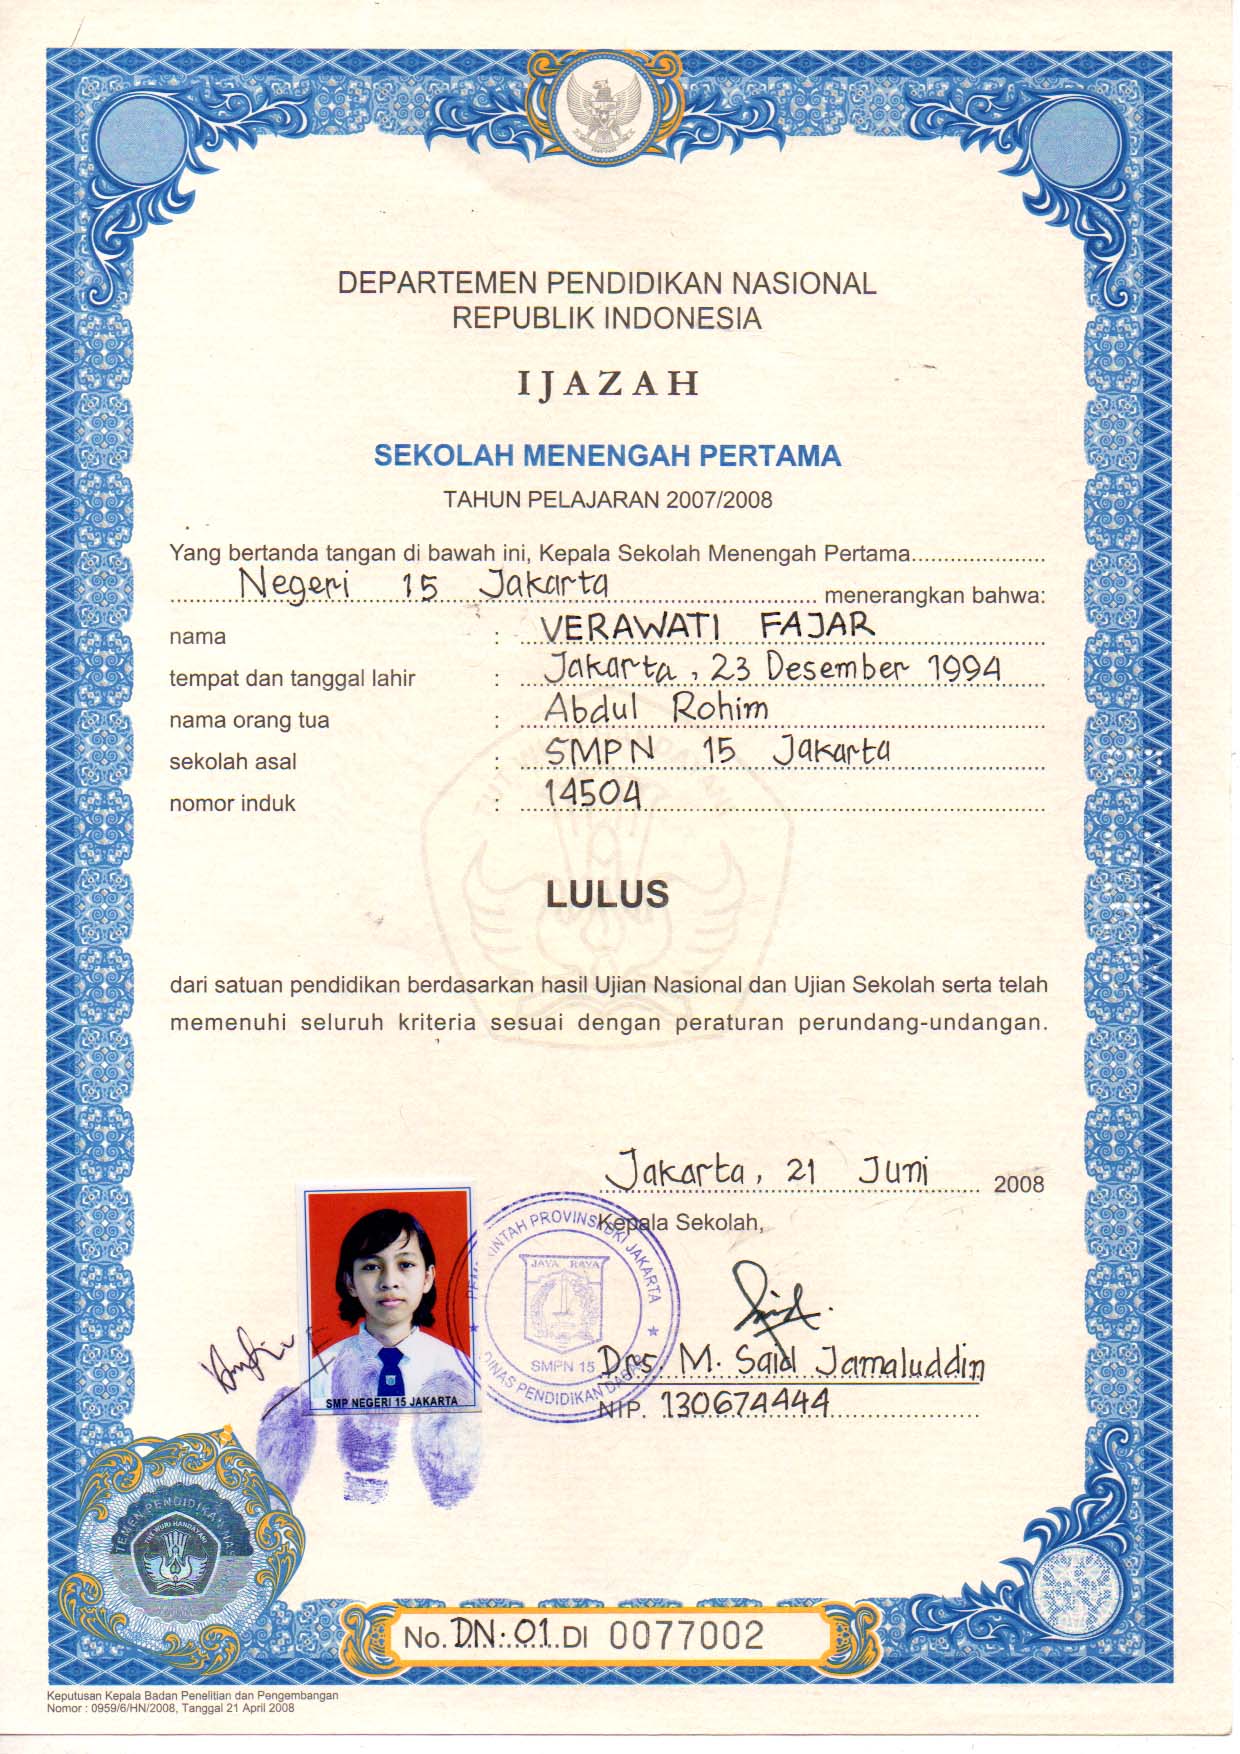 DEPARTEMEN PENDIDIKAN NASIONAL
REPUBLIK INDONESIA
IJAZAH
SEKOLAH MENENGAH PERTAMA
TAHUN PELAJARAN 2007/2008
Yang bertanda tangan di bawah ini, Kepala Sekolah Menengah Pertama....................
Negeri 15 Jakarta menerangkan bahwa:
nama : VERAWATI FAJAR
tempat dan tanggal lahir : Jakarta, 23 Desember 1994
nama orang tua : Abdul Rohim
sekolah asal : SMPN 15 Jakarta
nomor induk : 14504
LULUS
dari satuan pendidikan berdasarkan hasil Ujian Nasional dan Ujian Sekolah serta telah
memenuhi seluruh kriteria sesuai dengan peraturan perundang-undangan.
Jakarta, 21 Juni 2008
Kepala Sekolah,
PEMERINTAH PROVINSI DKI JAKARTA
JAYA RAYA
SMPN 15
DINAS PENDIDIKAN DASAR
SMP NEGERI 15 JAKARTA
Drs. M. Said Jamaluddin
NIP. 130674444
TUT WURI HANDAYANI
No. DN-01 DI 0077002
Keputusan Kepala Badan Penelitian dan Pengembangan
Nomor : 0959/6/HN/2008, Tanggal 21 April 2008